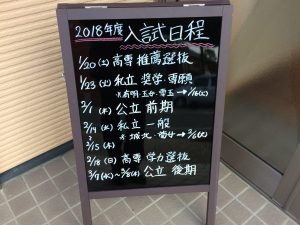 2018年度 入試日程
1/20(土) 高専 推薦選抜
1/23(火) 私立 奨学・専願
※有明・玉女・専玉→1/16(火)
2/1(木) 公立 前期
2/14(水) 私立 一般
※城北・菊女→2/6(火)
2/15(木)
2/18(日) 高専 学力選抜
3/7(水)~3/8(木) 公立 後期